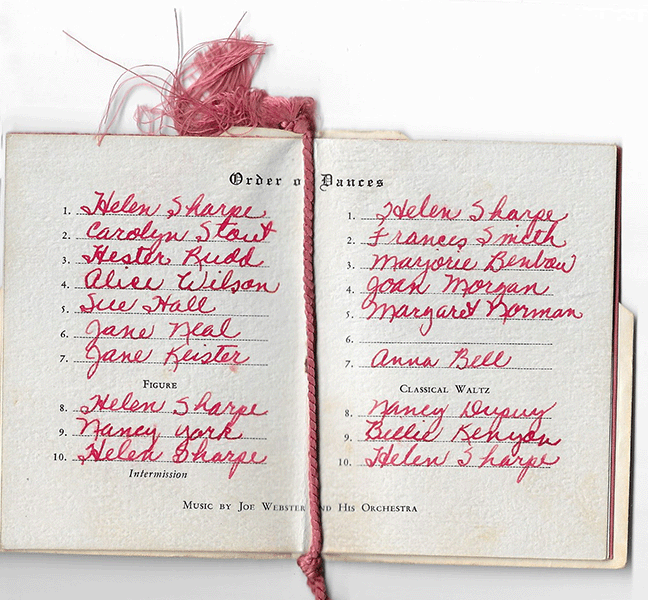 Order of Dances
1. Helen Sharpe
2. Carolyn Stout
3. Hester Rudd
4. Alice Wilson
5. Sue Hall
6. Jane Neal
7. Jane Keister
Figure
8. Helen Sharpe
9. Nancy York
10. Helen Sharpe
Intermission
1. Helen Sharpe
2. Frances Smith
3. Marjorie Benbow
4. Joan Morgan
5. Margaret Norman
6.
7. Anna Bell
Classical Waltz
8. Nancy Dupuy
9. Billie Kenyon
10. Helen Sharpe
Music by Joe Webster and His Orchestra